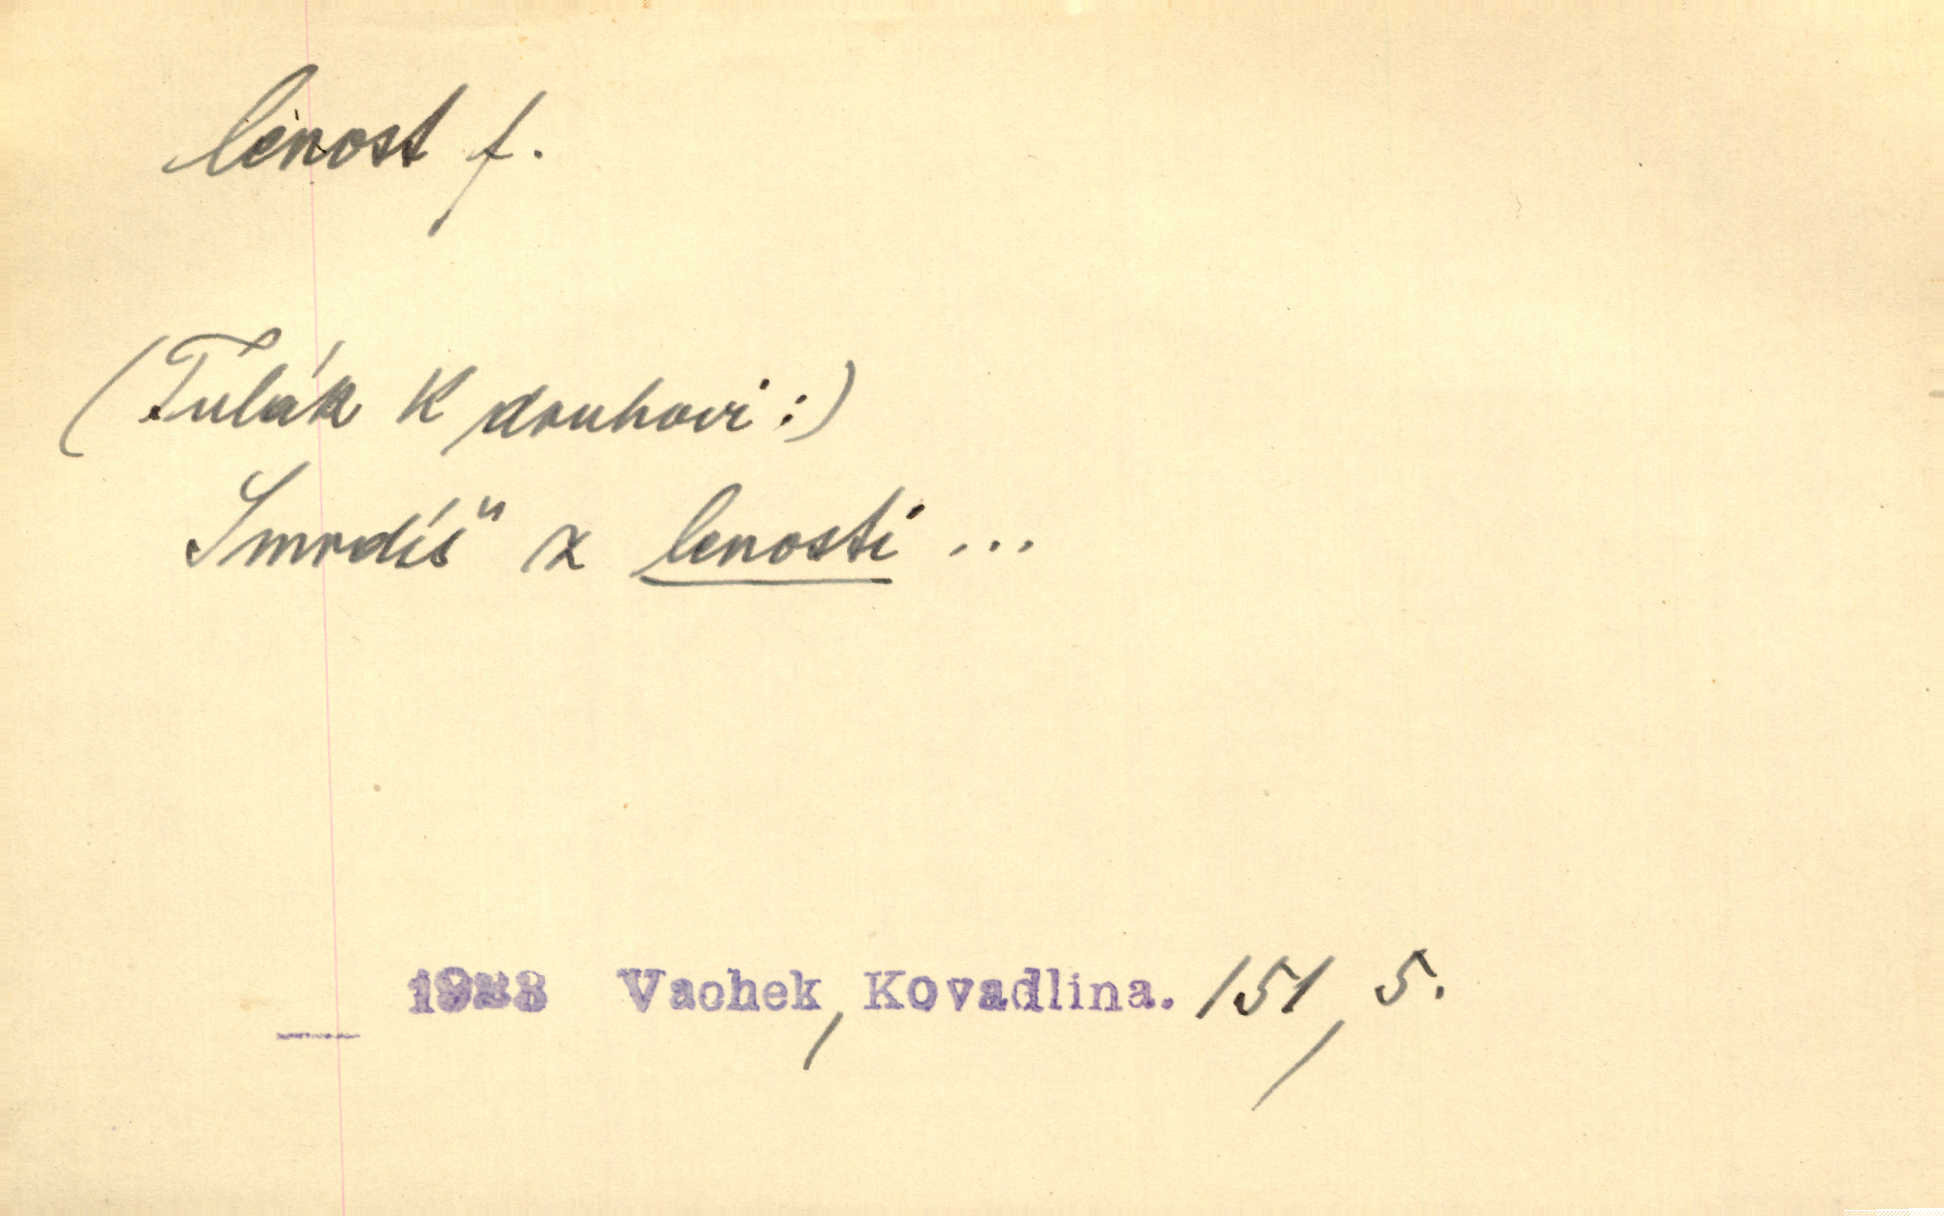 lenost f.
(Tulák k druhovi:)
Smrdíš z lenosti ...
Vachek, Kovadlina. 151, 5.